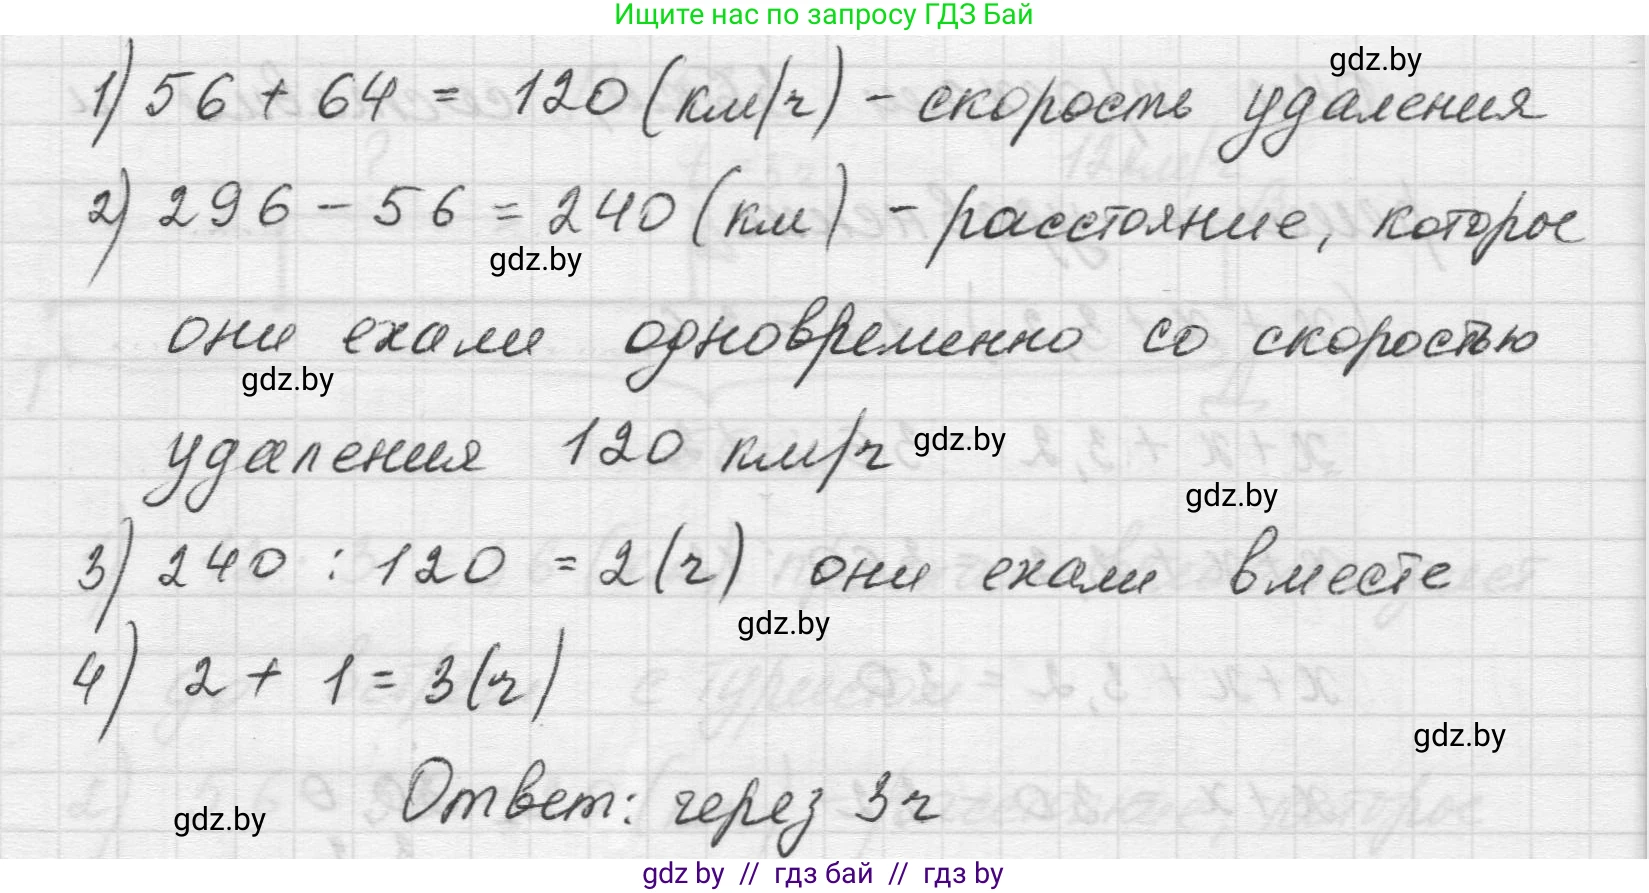 Ищите нас по запросу ГДЗ Бай
gdz.by
1) 56 + 64 = 120 (км/ч) - скорость удаления
2) 296 - 56 = 240 (км) - расстояние, которое
gdz.by
они ехали одновременно со скоростью
gdz.by
удаления 120 км/ч
gdz.by
gdz.by
3) 240 : 120 = 2 (ч) они ехали вместе
gdz.by
4) 2 + 1 = 3 (ч)
gdz.by
Ответ: через 3 ч
gdz.by
gdz by // гдз бай // гдз by